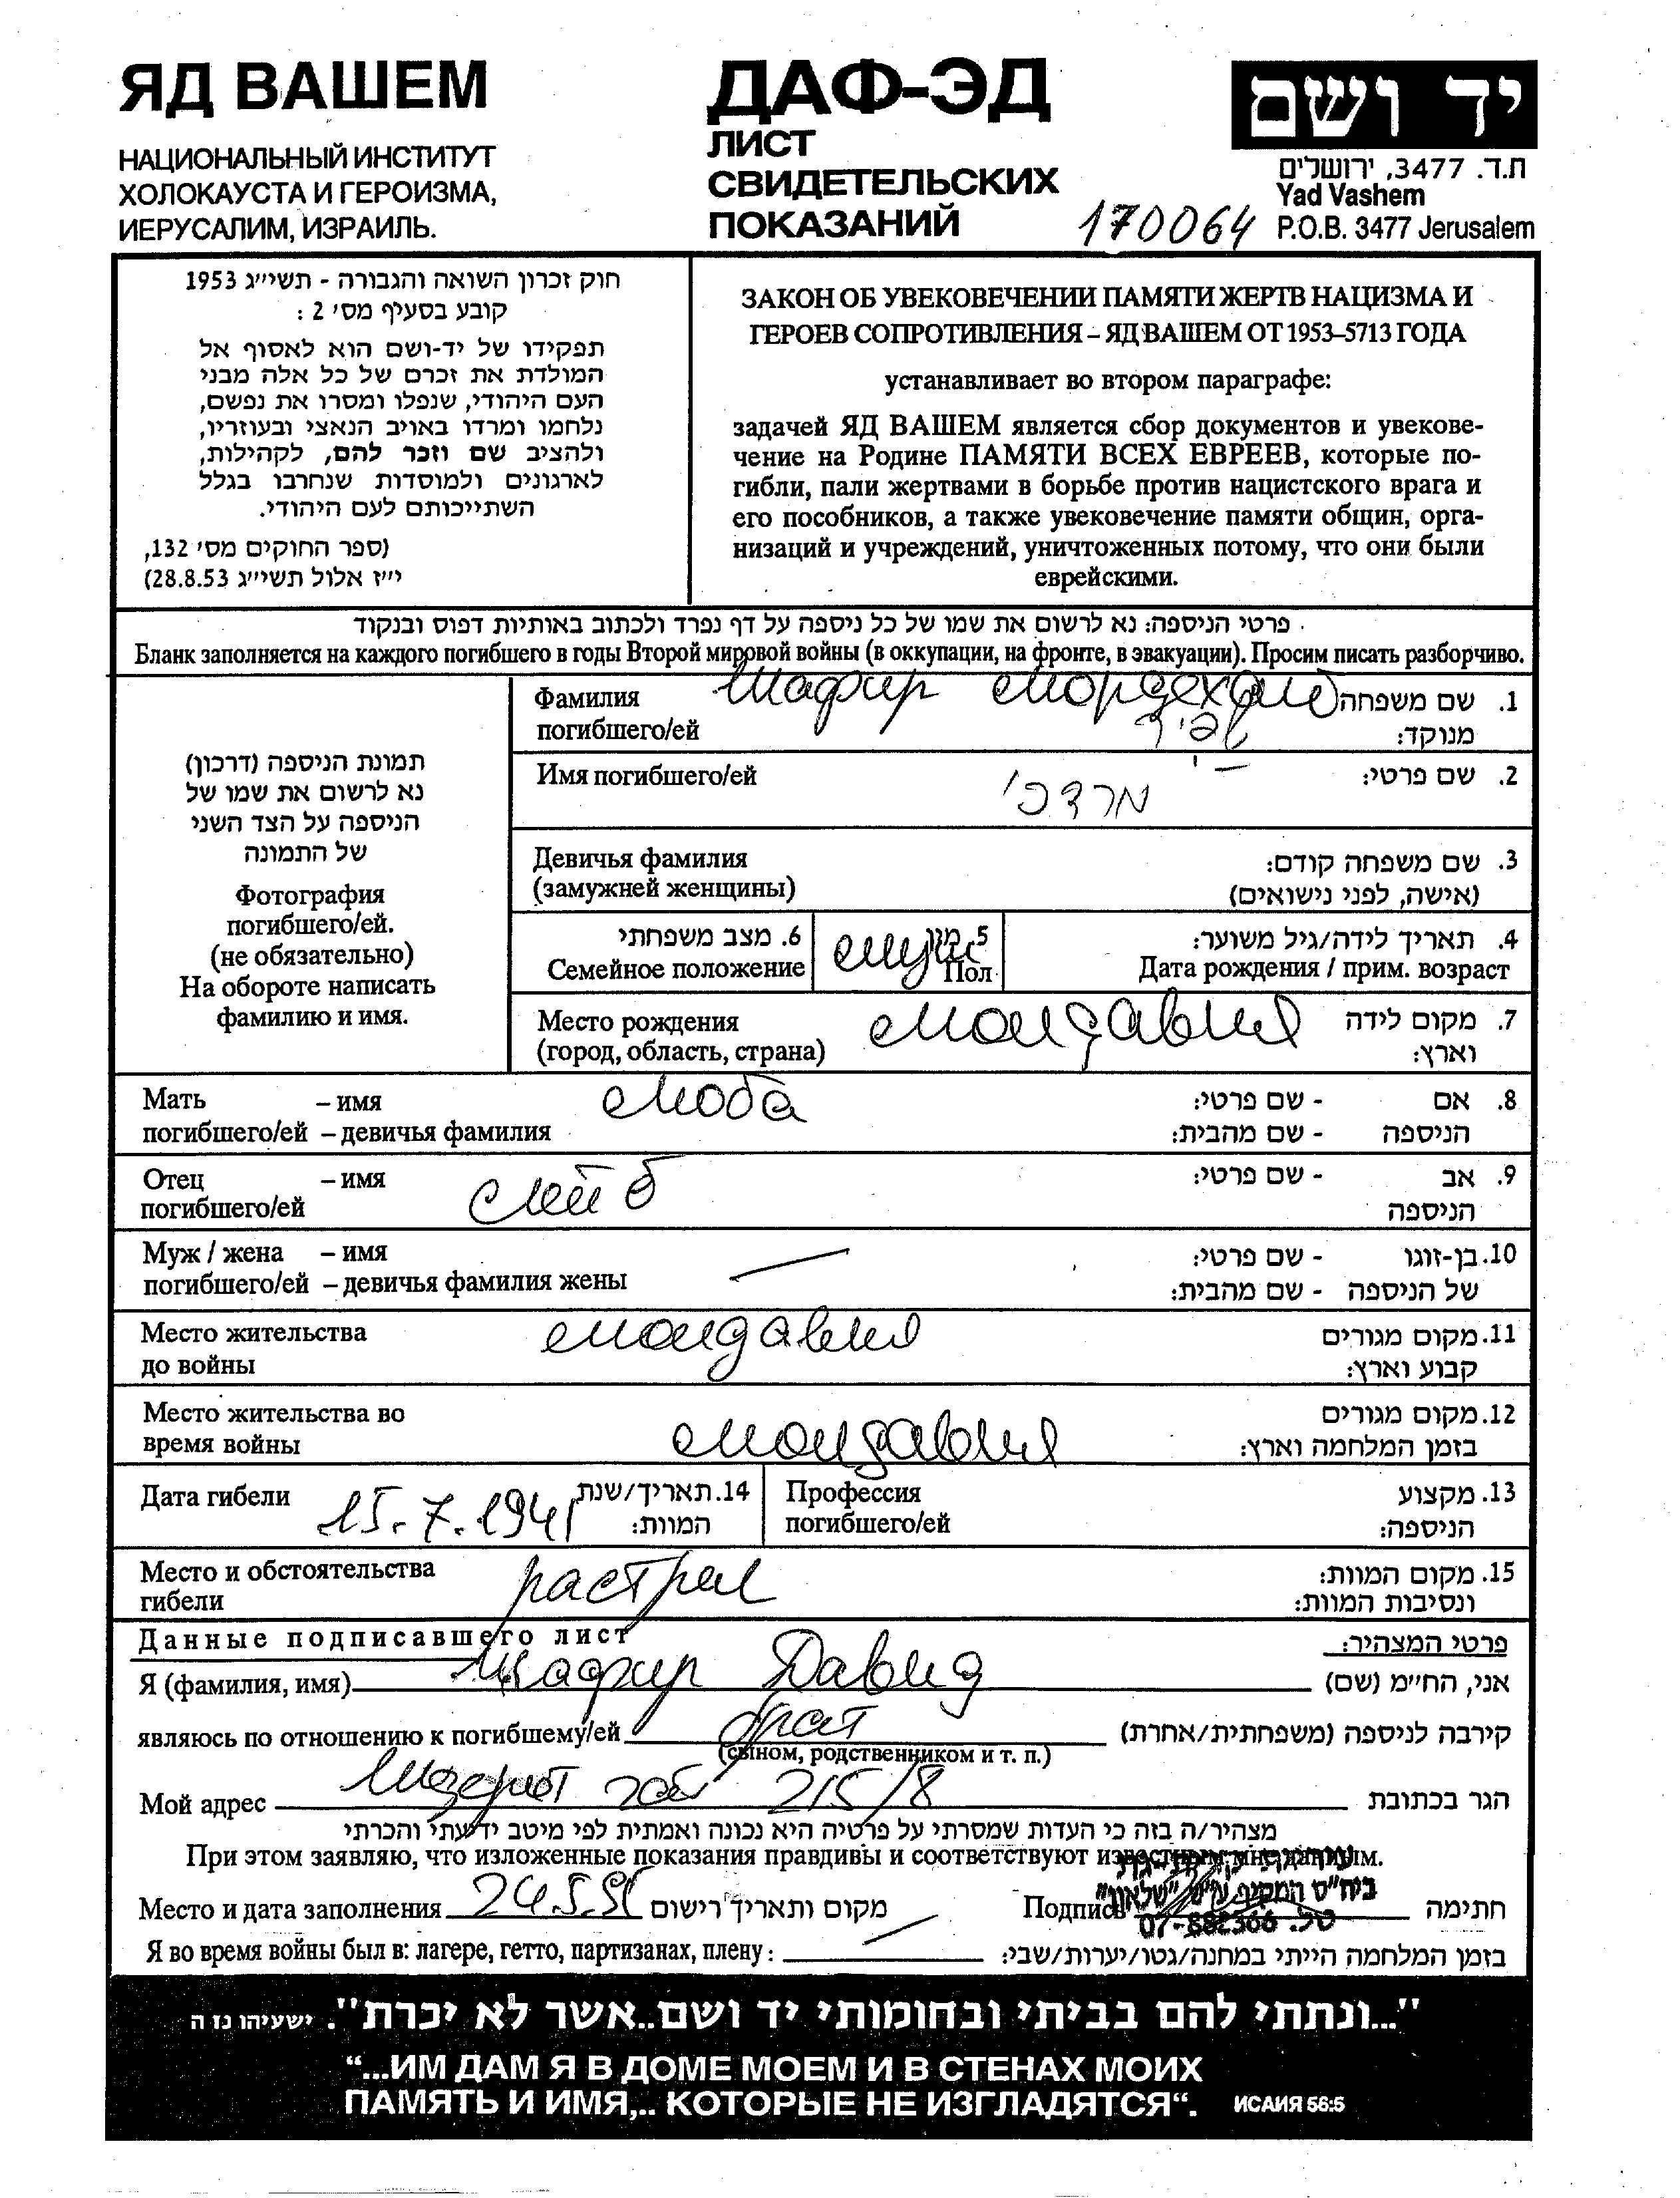 ЯД ВАШЕМ
НАЦИОНАЛЬНЫЙ ИНСТИТУТ
ХОЛОКАУСТА И ГЕРОИЗМА,
ИЕРУСАЛИМ, ИЗРАИЛЬ.
ДАФ-ЭД
ЛИСТ
СВИДЕТЕЛЬСКИХ
ПОКАЗАНИЙ
170064
יד ושם
ת.ד. 3477, ירושלים
Yad Vashem
P.O.B. 3477 Jerusalem
חוק זכרון השואה והגבורה - תשי״ג 1953
קובע בסעיף מס׳ 2 :
תפקידו של יד-ושם הוא לאסוף אל
המולדת את זכרם של כל אלה מבני
העם היהודי, שנפלו ומסרו את נפשם,
נלחמו ומרדו באויב הנאצי ובעוזריו,
ולהציב שם וזכר להם, לקהילות,
לארגונים ולמוסדות שנחרבו בגלל
השתייכותם לעם היהודי.
(ספר החוקים מס׳ 132,
י״ז אלול תשי״ג 28.8.53)
ЗАКОН ОБ УВЕКОВЕЧЕНИИ ПАМЯТИ ЖЕРТВ НАЦИЗМА И
ГЕРОЕВ СОПРОТИВЛЕНИЯ – ЯД ВАШЕМ ОТ 1953–5713 ГОДА
устанавливает во втором параграфе:
задачей ЯД ВАШЕМ является сбор документов и увекове-
чение на Родине ПАМЯТИ ВСЕХ ЕВРЕЕВ, которые по-
гибли, пали жертвами в борьбе против нацистского врага и
его пособников, а также увековечение памяти общин, орга-
низаций и учреждений, уничтоженных потому, что они были
еврейскими.
פרטי הניספה: נא לרשום את שמו של כל ניספה על דף נפרד ולכתוב באותיות דפוס ובנקוד
Бланк заполняется на каждого погибшего в годы Второй мировой войны (в оккупации, на фронте, в эвакуации). Просим писать разборчиво.
תמונת הניספה (דרכון)
נא לרשום את שמו של
הניספה על הצד השני
של התמונה
Фотография
погибшего/ей.
(не обязательно)
На обороте написать
фамилию и имя.
Фамилия Шафир Мордехай 1. שם משפחה
погибшего/ей שפיר מנוקד:
Имя погибшего/ей מרדכי 2. שם פרטי:
Девичья фамилия 3. שם משפחה קודם:
(замужней женщины) (אישה, לפני נישואים)
6. מצב משפחתי 5. מין 4. תאריך לידה/גיל משוער:
Семейное положение муж Пол Дата рождения / прим. возраст
Место рождения Молдавия 7. מקום לידה
(город, область, страна) וארץ:
Мать – имя Моба 8. אם - שם פרטי:
погибшего/ей – девичья фамилия הניספה - שם מהבית:
Отец – имя Лейб 9. אב - שם פרטי:
погибшего/ей הניספה
Муж / жена – имя — 10. בן-זוגו - שם פרטי:
погибшего/ей – девичья фамилия жены של הניספה - שם מהבית:
Место жительства Молдавия 11. מקום מגורים
до войны קבוע וארץ:
Место жительства во 12. מקום מגורים
время войны Молдавия בזמן המלחמה וארץ:
Дата гибели 15.7.1941 14. תאריך/שנת המוות: Профессия 13. מקצוע
погибшего/ей הניספה:
Место и обстоятельства расстрел 15. מקום המוות:
гибели ונסיבות המוות:
Данные подписавшего лист פרטי המצהיר:
Я (фамилия, имя) Шафир Давид אני, הח״מ (שם)
являюсь по отношению к погибшему/ей брат קירבה לניספה (משפחתית/אחרת)
(сыном, родственником и т. п.)
Мой адрес 215/8 הגר בכתובת
מצהיר/ה בזה כי העדות שמסרתי על פרטיה היא נכונה ואמתית לפי מיטב ידיעתי והכרתי
При этом заявляю, что изложенные показания правдивы и соответствуют известным мне данным.
ביה"ס המקיף ע"ש
טל. 07-882366
Место и дата заполнения 24.5.91 מקום ותאריך רישום Подпись חתימה
Я во время войны был в: лагере, гетто, партизанах, плену: — בזמן המלחמה הייתי במחנה/גטו/יערות/שבי:
"...ונתתי להם בביתי ובחומותי יד ושם..אשר לא יכרת". ישעיהו נז ה
“...ИМ ДАМ Я В ДОМЕ МОЕМ И В СТЕНАХ МОИХ
ПАМЯТЬ И ИМЯ,.. КОТОРЫЕ НЕ ИЗГЛАДЯТСЯ“. ИСАИЯ 56:5